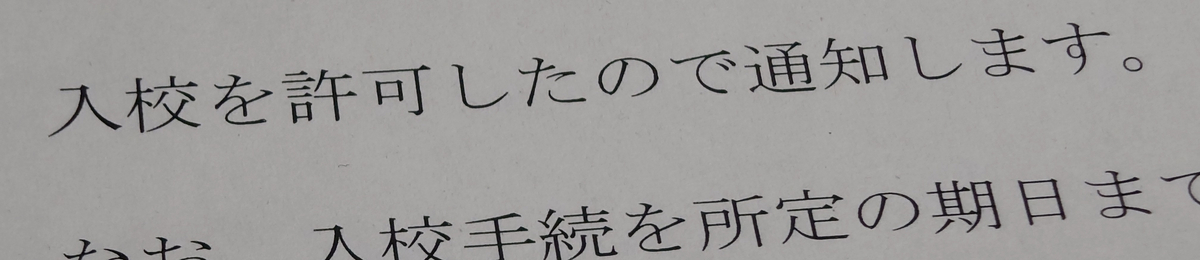 入校を許可したので通知します。
なお、入校手続を所定の期日まで